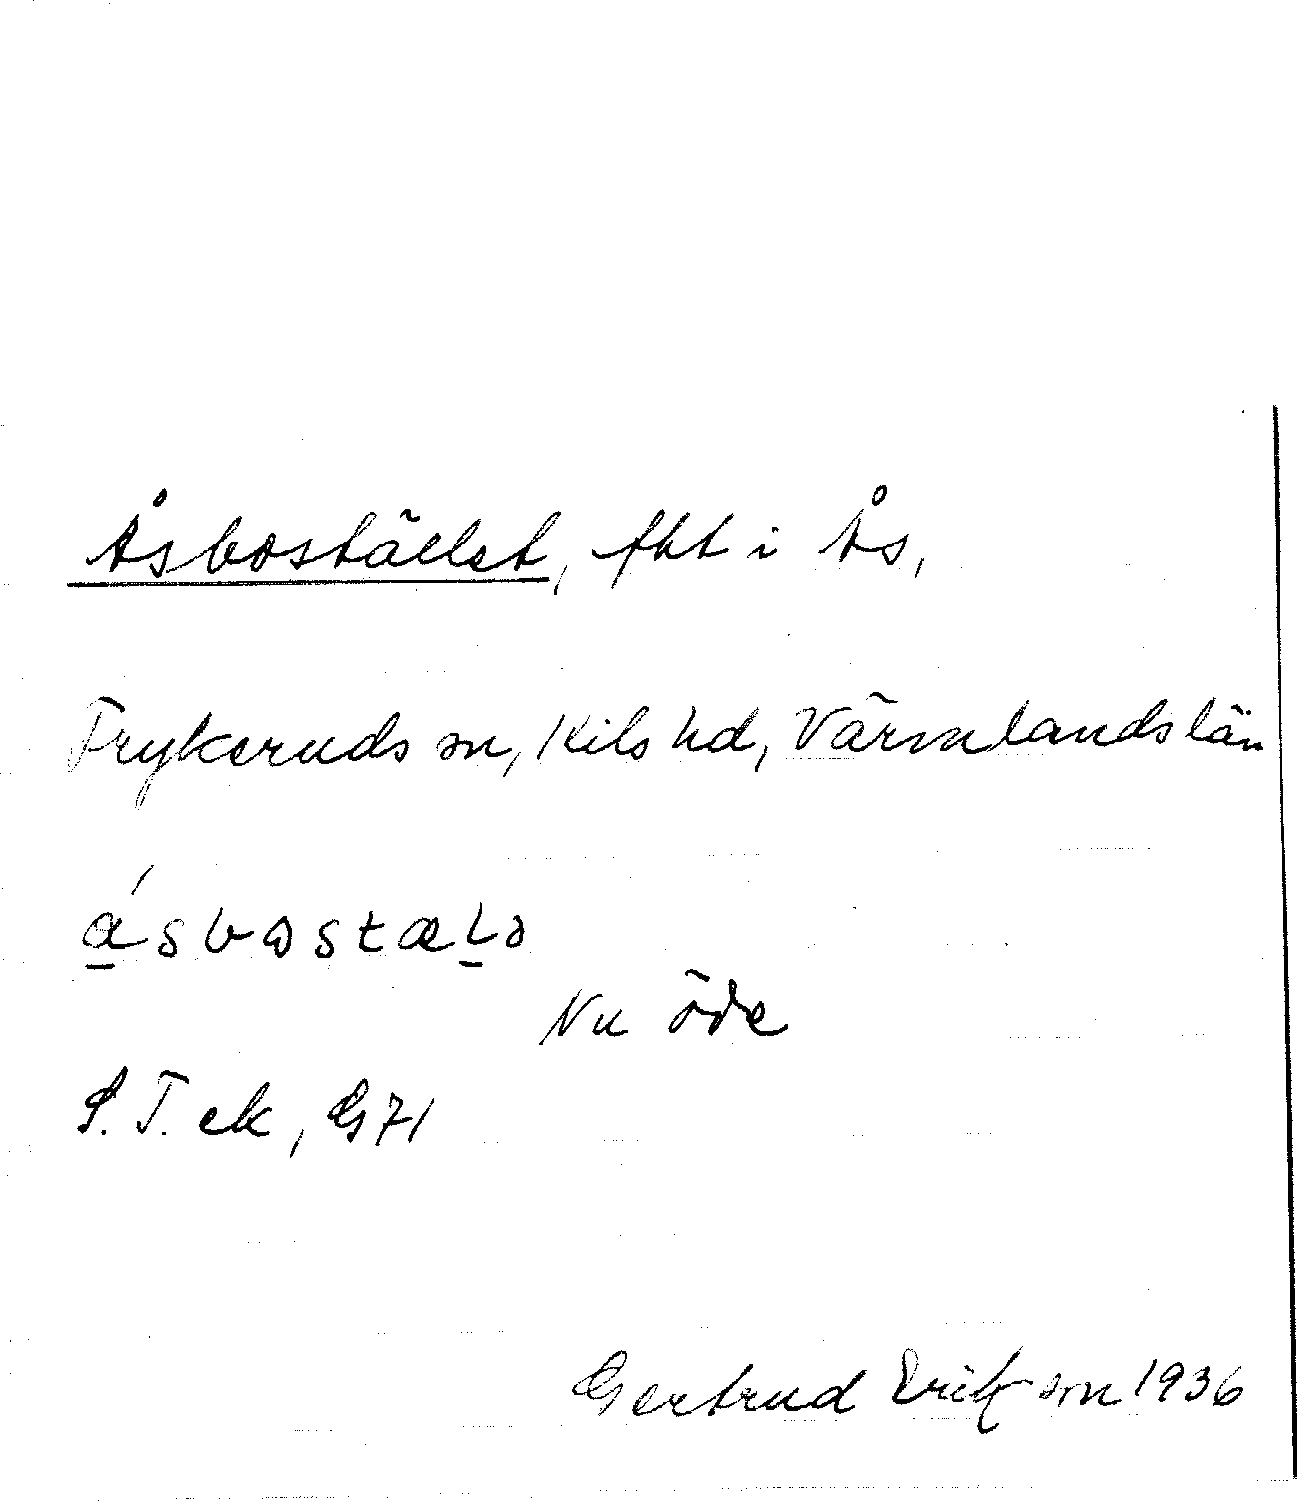 Åsbostället, fht i Ås,
Frykeruds sn, Kils hd, Värmlands län
ásbostælə
Nu öde
S. T. ek, G71
Gertrud Erikson 1936